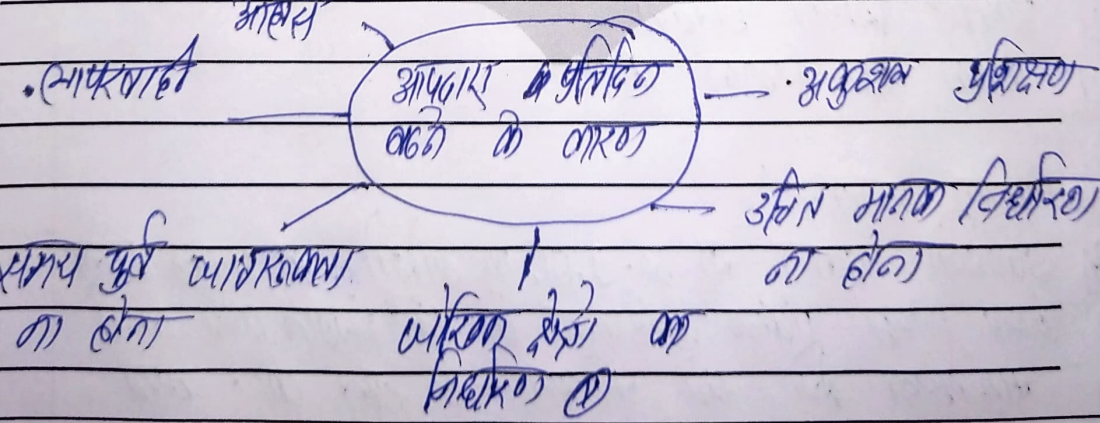 आपदाए प्रतिदिन
बढने के कारण
• लापरवाही
• अकुशल प्रशिक्षण
उचित मानक निर्धारण
ना होना
समय पुर्व जागरूकता
ना होना
जोखिम क्षेत्रो का
निर्धारण